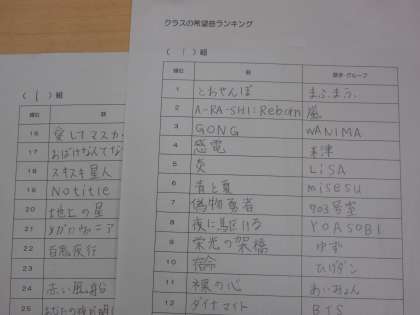 クラスの希望曲ランキング
( 1 ) 組
順位 曲 歌手・グループ
1 とおせんぼ まふまふ
2 A-RA-SHI:Reborn 嵐
3 GONG WANIMA
4 感電 米津
5 炎 LiSA
6 青と夏 misesu
7 偽物勇者 703号室
8 夜に駆ける YOASOBI
9 栄光の架橋 ゆず
10 宿命 ひげダン
11 裸の心 あいみょん
12 ダイナマイト BTS
( 1 ) 組
順位 曲
16 愛してマスカ
17 おばけなんてな
18 スキスキ星人
19 Notitle
20 地上の星
21
22 百鬼夜行
23
24 赤い風船
25 あなたの夜が明け